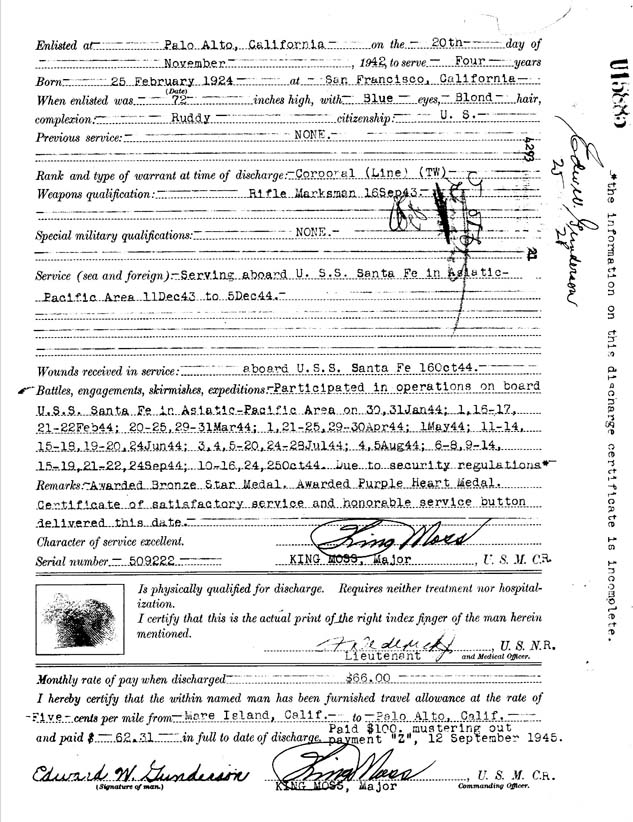 Enlisted at Palo Alto, California on the 20th day of
November, 1942, to serve Four years
Born 25 February 1924 at San Francisco, California
(Date)
When enlisted was 72 inches high, with Blue eyes, Blond hair,
complexion: Ruddy citizenship: U. S.
Previous service: NONE.
Rank and type of warrant at time of discharge: Corporal (Line) (TW)
Weapons qualification: Rifle Marksman 16Sep43.
Special military qualifications: NONE.
Service (sea and foreign): Serving aboard U. S.S. Santa Fe in Asiatic-
Pacific Area 11Dec43 to 5Dec44.
Wounds received in service: aboard U.S.S. Santa Fe 16Oct44.
Battles, engagements, skirmishes, expeditions: Participated in operations on board
U.S.S. Santa Fe in Asiatic-Pacific Area on 30,31Jan44; 1,16-17,
21-22Feb44; 20-25,29-31Mar44; 1,21-25,29-30Apr44; 1May44; 11-14,
15-18,19-20,24Jun44; 3,4,5-20,24-28Jul44; 4,5Aug44; 6-8,9-14,
15-19,21-22,24Sep44; 10-16,24,25Oct44. Due to security regulations*
Remarks: Awarded Bronze Star Medal. Awarded Purple Heart Medal.
Certificate of satisfactory service and honorable service button
delivered this date.
Character of service excellent.
King Moss
Serial number 509222 KING MOSS, Major, U. S. M. CR.
Is physically qualified for discharge. Requires neither treatment nor hospital-
ization.
I certify that this is the actual print of the right index finger of the man herein
mentioned.
, U. S. N.R.
Lieutenant and Medical Officer.
Monthly rate of pay when discharged $66.00
I hereby certify that the within named man has been furnished travel allowance at the rate of
Five cents per mile from Mare Island, Calif. to Palo Alto, Calif.
Paid $100. mustering out
and paid $ 62.31 in full to date of discharge. payment "Z", 12 September 1945.
Edward W. Gunderson King Moss, U. S. M. CR.
(Signature of man.) KING MOSS, Major Commanding Officer.
U15885
4293
21
*the information on this discharge certificate is incomplete.